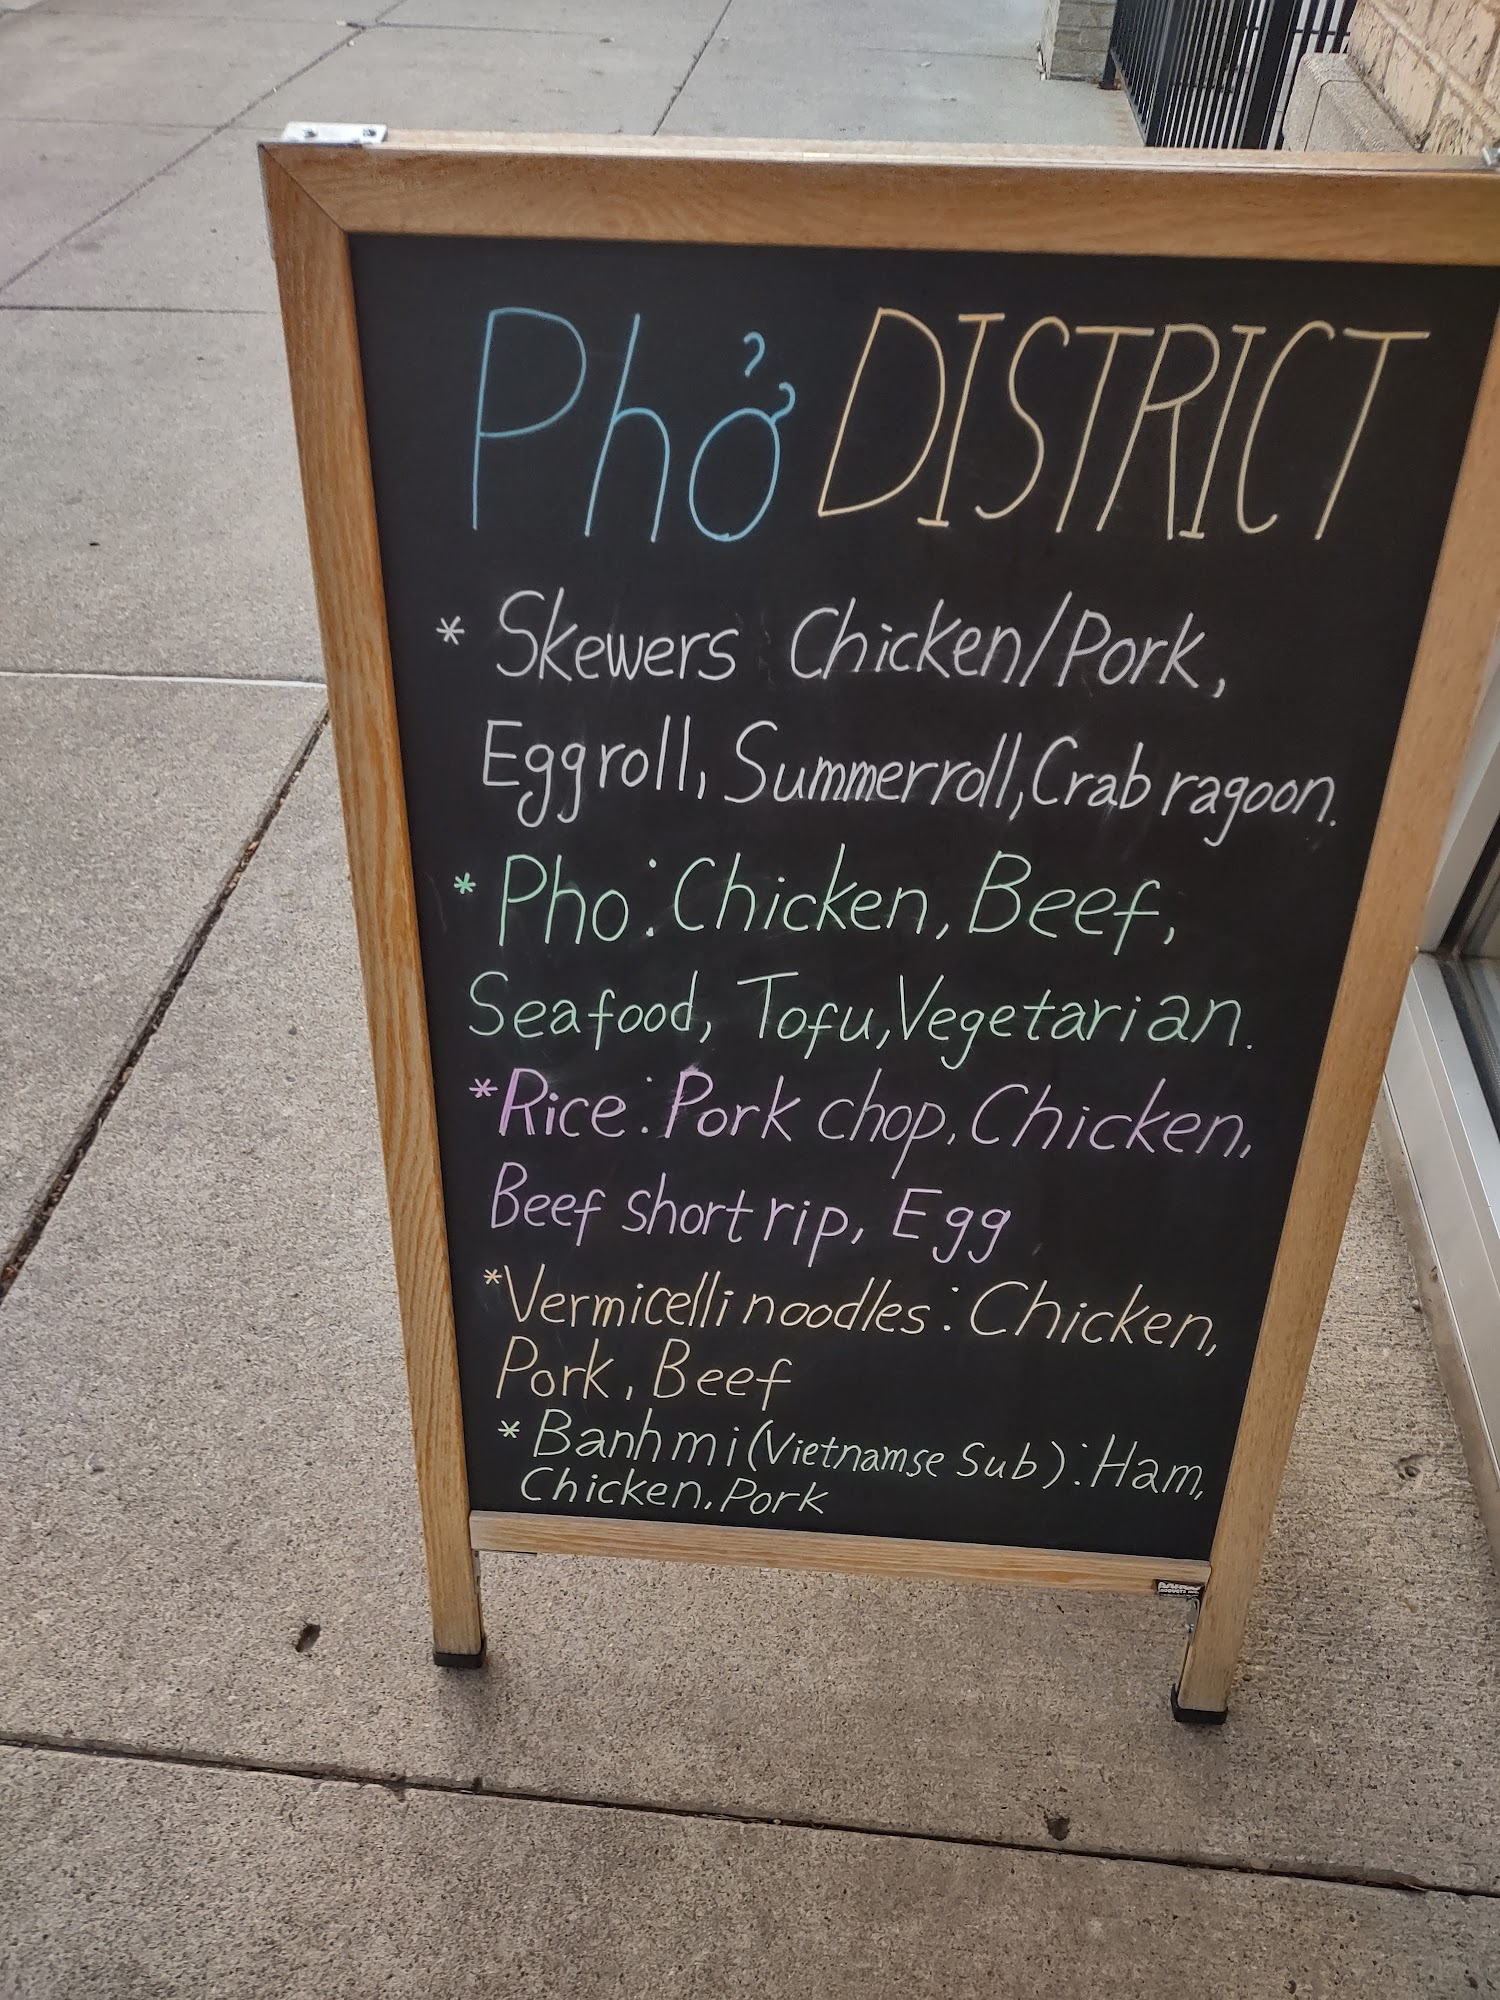 Phở DISTRICT
* Skewers Chicken/Pork,
Eggroll, Summerroll, Crab ragoon.
* Pho: Chicken, Beef,
Seafood, Tofu, Vegetarian.
* Rice: Pork chop, Chicken,
Beef short rip, Egg
* Vermicelli noodles: Chicken,
Pork, Beef
* Banh mi (Vietnamse Sub): Ham,
Chicken, Pork